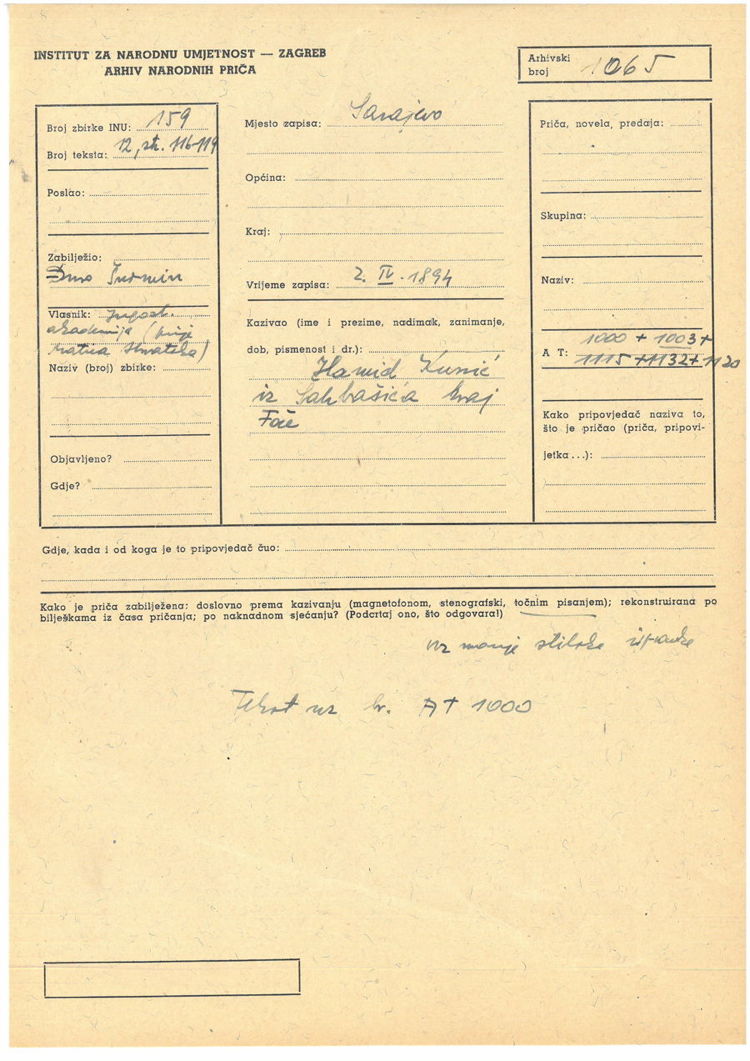 INSTITUT ZA NARODNU UMJETNOST — ZAGREB
ARHIV NARODNIH PRIČA
Arhivski
broj 1065
Broj zbirke INU: 159
Broj teksta: 12, str. 116-119
Poslao:
Zabilježio:
Đuro Šurmin
Vlasnik: Jugosl.
akademija (prije
Matica Hrvatska)
Naziv (broj) zbirke:
Objavljeno?
Gdje?
Mjesto zapisa: Sarajevo
Općina:
Kraj:
Vrijeme zapisa: 2. IV. 1894
Kazivao (ime i prezime, nadimak, zanimanje,
dob, pismenost i dr.):
Hamid
iz kraj
Foče
Priča, novela, predaja:
Skupina:
Naziv:
1000 + 1003 +
A T: 1115 + 1132 + 1120
Kako pripovjedač naziva to,
što je pričao (priča, pripovi-
jetka...):
Gdje, kada i od koga je to pripovjedač čuo:
Kako je priča zabilježena: doslovno prema kazivanju (magnetofonom, stenografski, točnim pisanjem); rekonstruirana po
bilješkama iz časa pričanja; po naknadnom sjećanju? (Podcrtaj ono, što odgovara!)
uz manje stilske ispravke
Tekst uz br. AT 1000